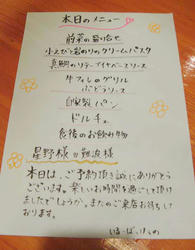 本日のメニュー
前菜の盛り合せ
小えびとあおのりのクリームパスタ
真鯛のソテー ブイヤベースソース
牛フィレのグリル
ぶどうソース
自家製パン
ドルチェ
食後のお飲み物
星野様 難波様
本日は、ご予約頂き誠にありがとう
ございます。楽しいお時間を過ごして頂け
ましたでしょうか。またのご来店お待ちして
おります。